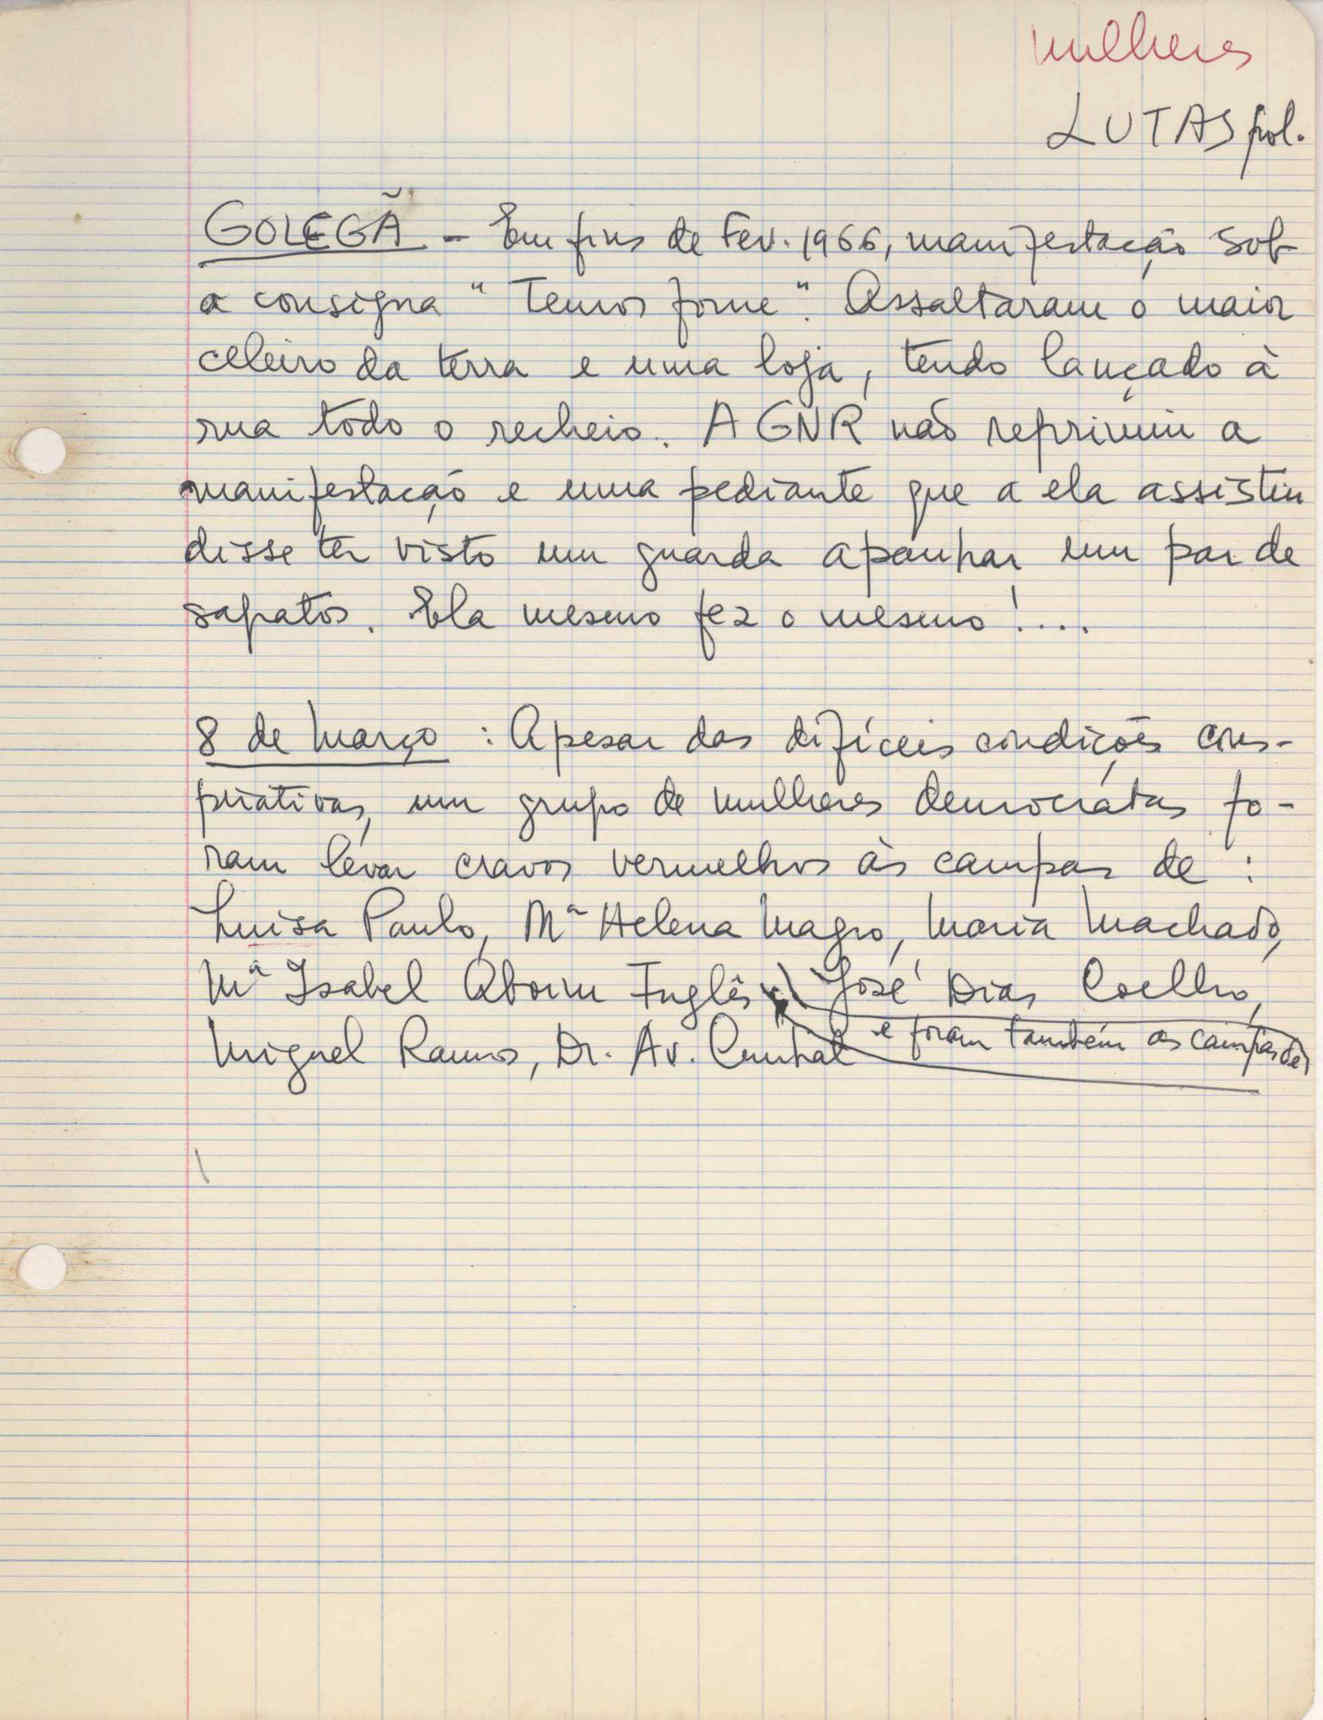 Mulheres
LUTAS pol.
GOLEGÃ - Em fins de Fev. 1966, manifestação sob
a consigna "Temos fome". Assaltaram o maior
celeiro da terra e uma loja, tendo lançado à
rua todo o recheio. A GNR não reprimiu a
manifestação e uma pediante que a ela assistiu
disse ter visto um guarda apanhar um par de
sapatos. Ela mesmo fez o mesmo!....
8 de Março : Apesar das difíceis condições cons-
pirativas, um grupo de mulheres democrátas fo-
ram levar cravos vermelhos às campas de :
Luisa Paulo, Mª Helena Magro, Maria Machado,
Mª Isabel Aboim Inglês José Dias Coelho,
Miguel Ramos, Dr. Av. Cunhal e foram também as campas de